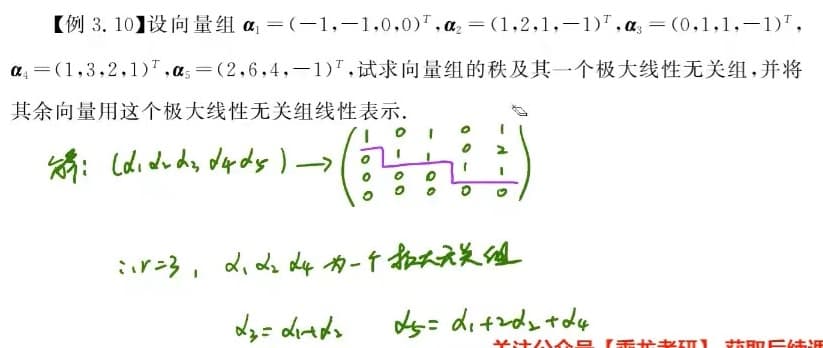 【例 3.10】设向量组 α₁=(−1,−1,0,0)ᵀ,α₂=(1,2,1,−1)ᵀ,α₃=(0,1,1,−1)ᵀ,
α₄=(1,3,2,1)ᵀ,α₅=(2,6,4,−1)ᵀ,试求向量组的秩及其一个极大线性无关组,并将
其余向量用这个极大线性无关组线性表示.
解: (α₁ α₂ α₃ α₄ α₅) → ( 1 0 1 0 1
0 1 1 0 2
0 0 0 1 1
0 0 0 0 0 )
∴ r=3, α₁ α₂ α₄ 为一个极大无关组
α₃=α₁+α₂ α₅=α₁+2α₂+α₄